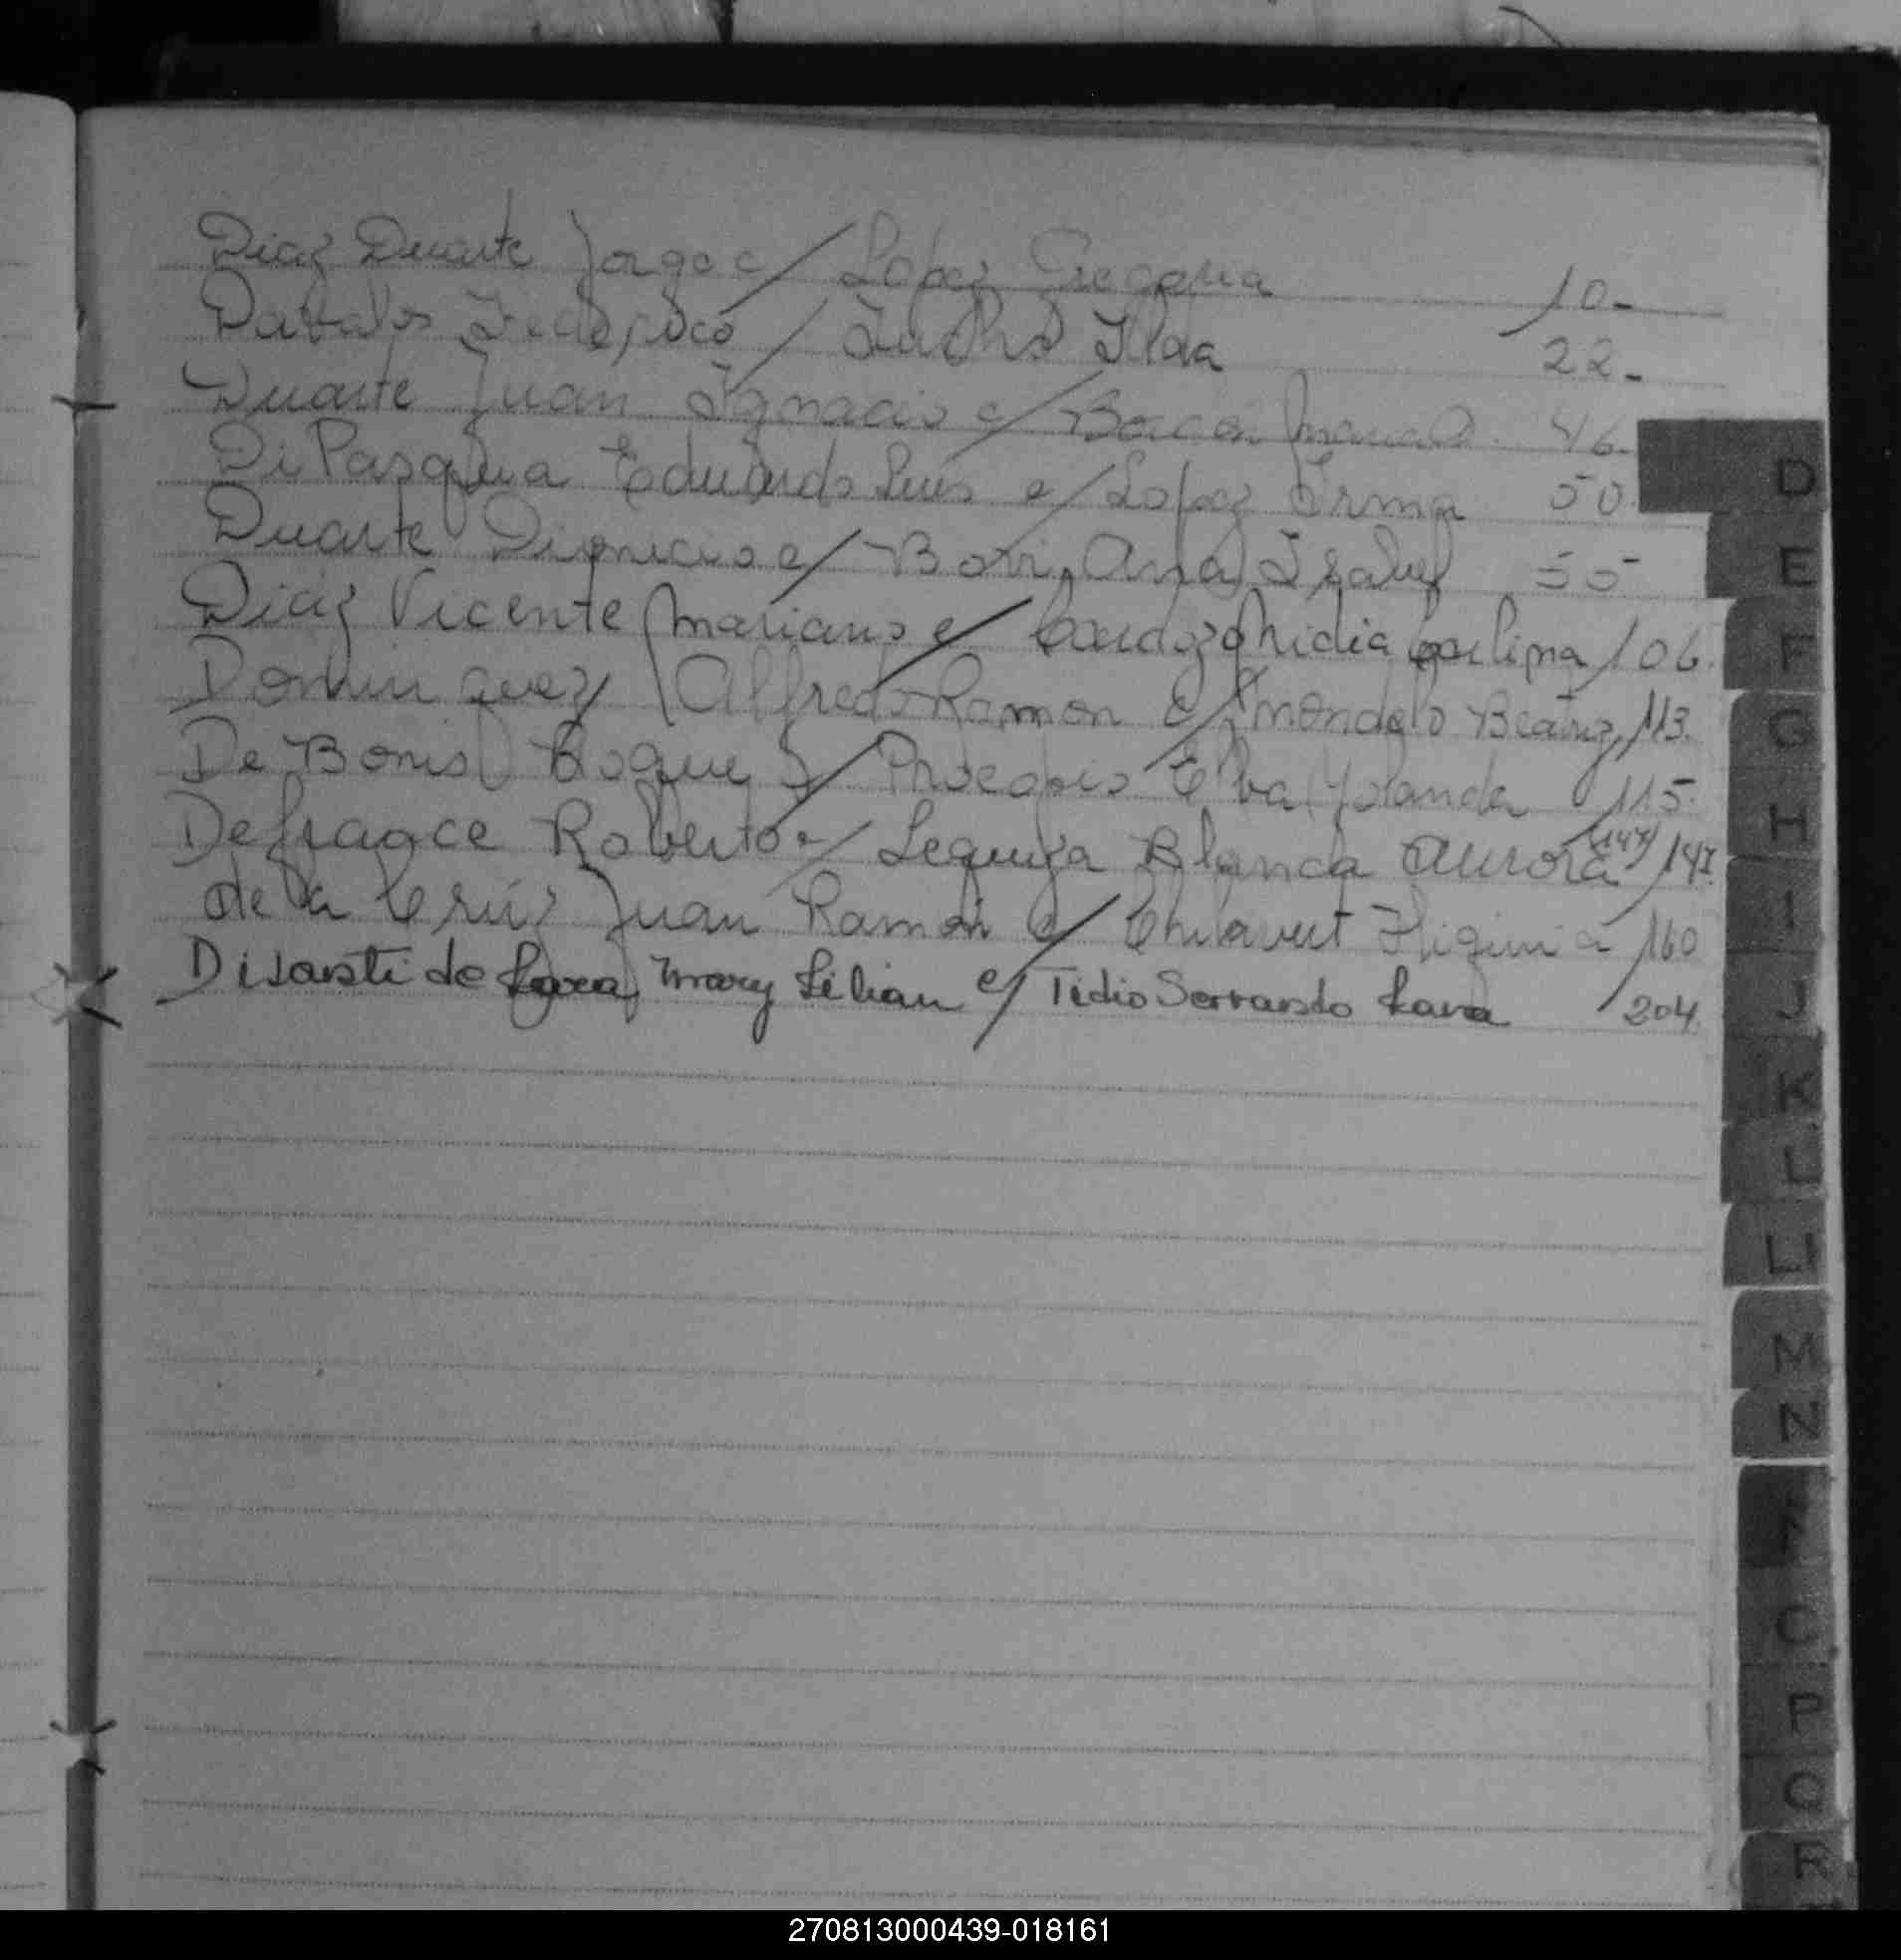 Diaz Duarte Jorge c/ Lopez Gregoria 10-
Davalos Federico c/ Ilda 22-
Duarte Juan Ignacio c/ Maria 46-
Di Pasqua Eduardo Luis c/ Lopez Irma 50-
Duarte Dionicio c/ Ana Isabel 55
Diaz Vicente Mariano c/ Cardozo Nidia 106.
Dominguez Alfredo Ramon c/ Mondelo Beatriz 113.
De Bonis Roque c/ Elba Yolanda 115.
Defraace Roberto c/ Leguiza Blanda Aurora (147) 147.
de la Cruz Juan Ramón c/ Chilavert Higinia 160
Disasti de Lara, Mary Lilian c/ Tidio Servando Lara 204.
D
E
F
G
H
I
J
K
L
Ll
M
N
P
Q
R
270813000439-018161